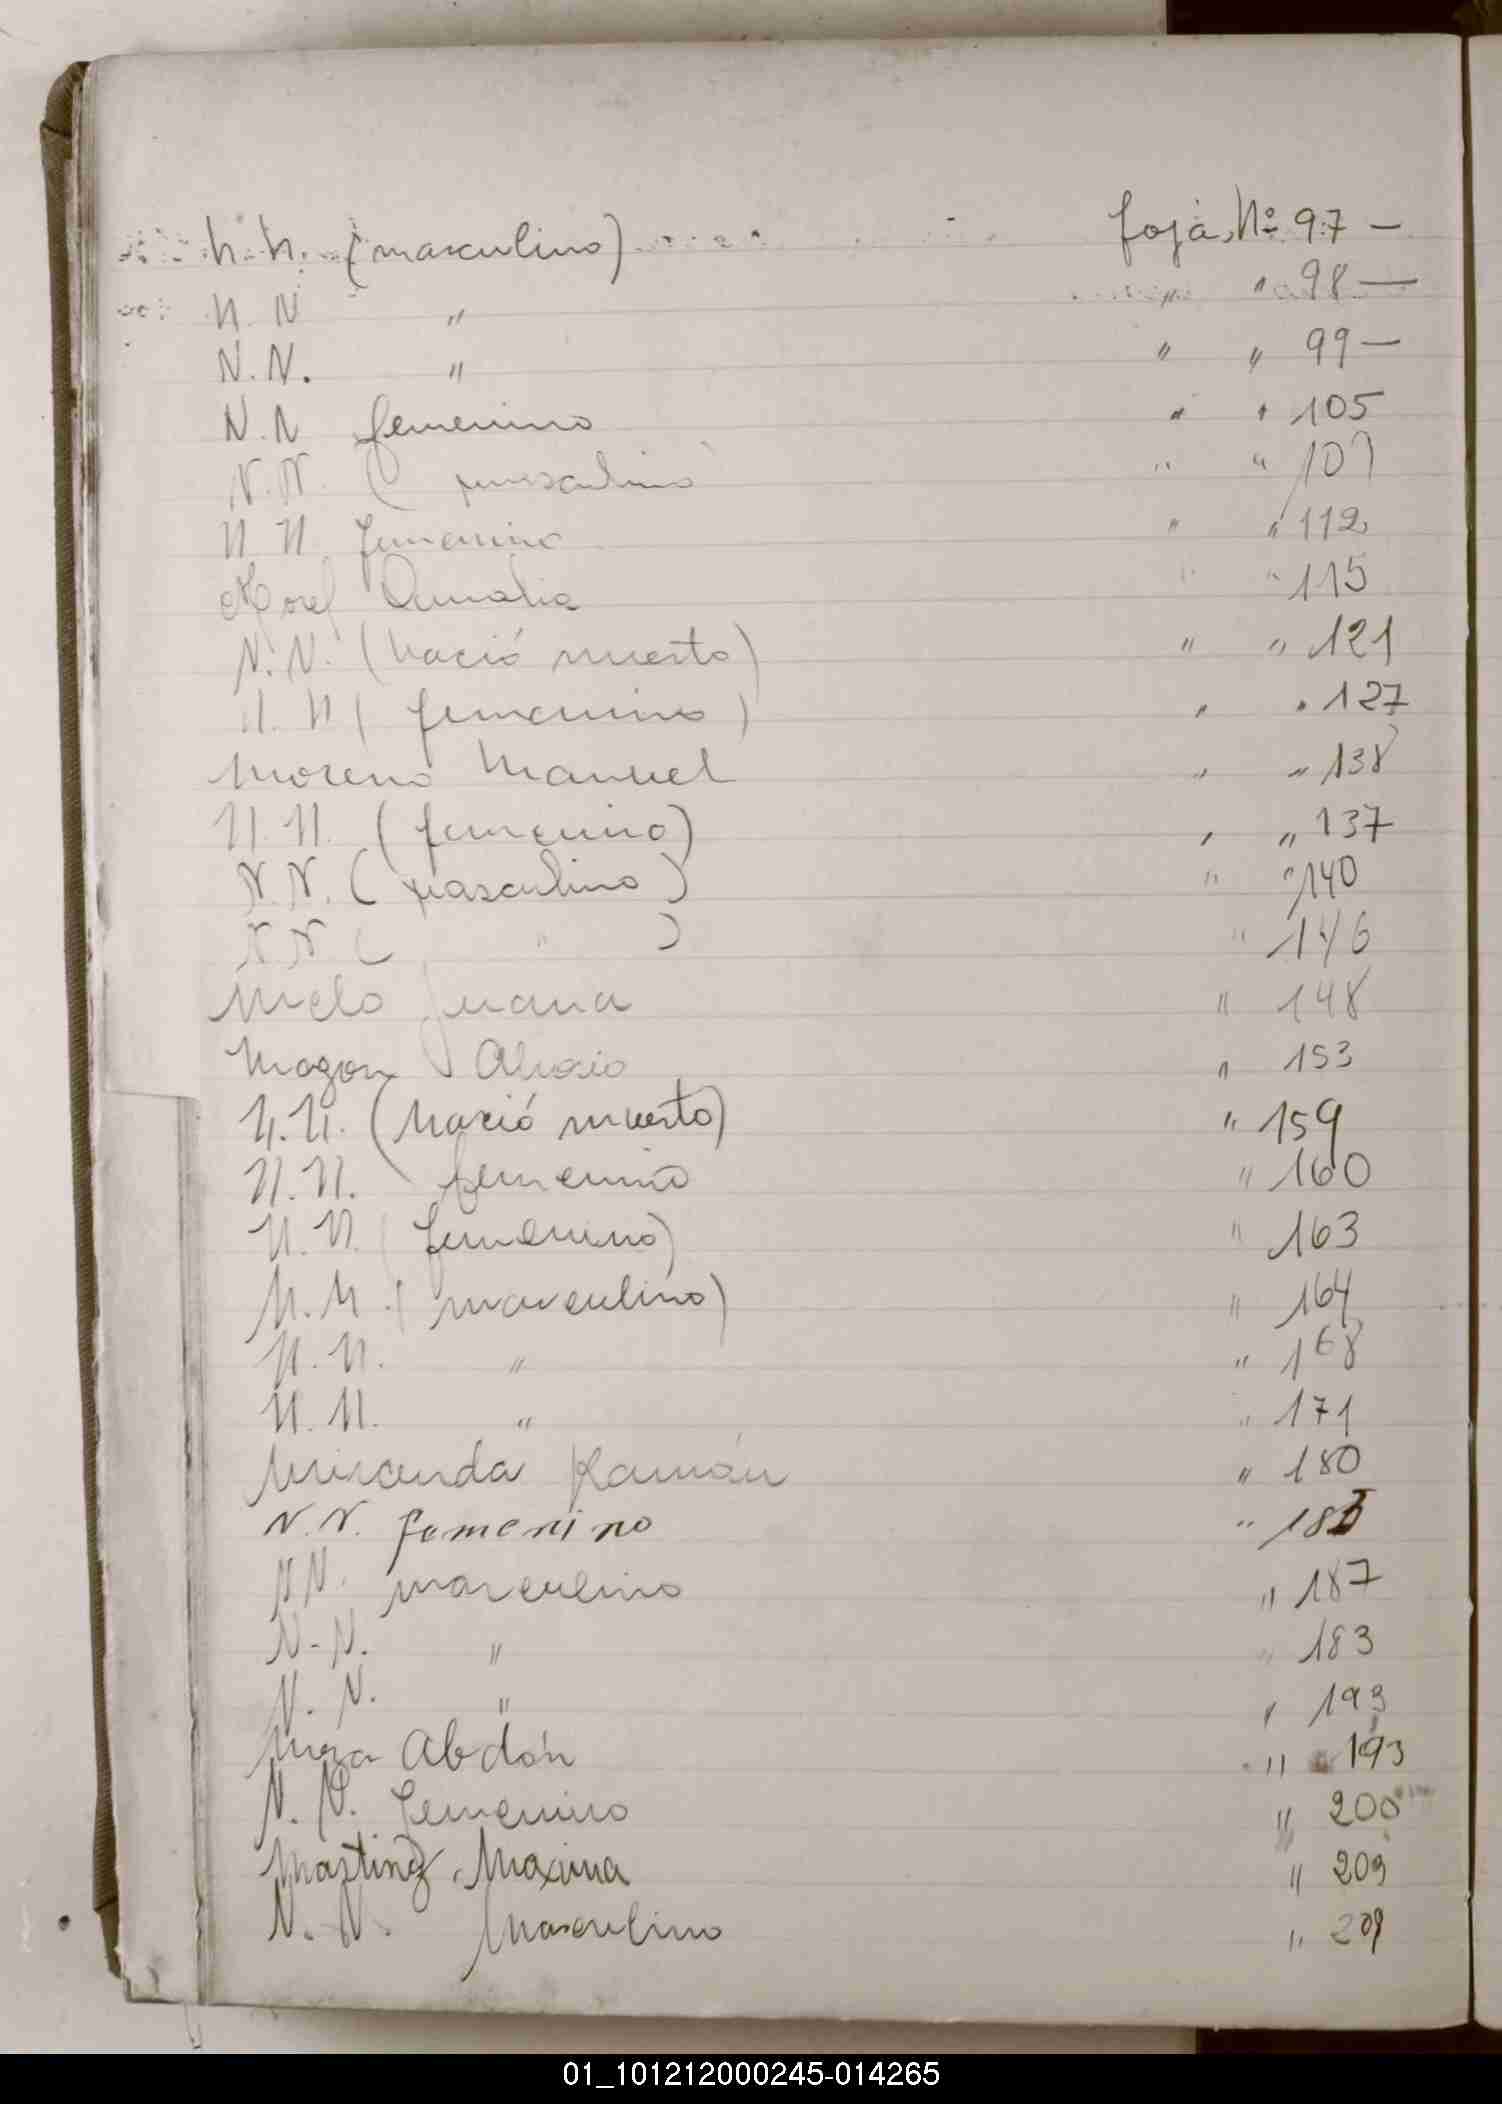 N. N. (masculino) foja, Nº 97 —
N. N " " " 98 —
N. N. " " " 99 —
N. N femenino " " 105
N. N. ( masculino " " 107
N N femenino " " 112
Amalia " " 115
N. N. (Nació muerto) " " 121
N. N ( femenino ) " " 127
Moreno Manuel " " 138
N. N. (femenino) " " 137
N. N. ( masculino ) " " 140
N N ( " ) " 146
Melo Juana " 148
Mogon " 153
N. N. (Nació muerto) " 159
N. N. femenino " 160
N. N. ( femenino) " 163
N. N. ( masculino) " 164
N. N. " " 168
N. N. " " 171
Miranda Ramón " 180
N. N. femenino "
N N. masculino " 187
N - N. " " 183
N. N. " " 193
Meza Abdón " 193
N. N. femenino " 200
Martinez, Maxima " 209
N. N. Masculino " 209
01_101212000245-014265